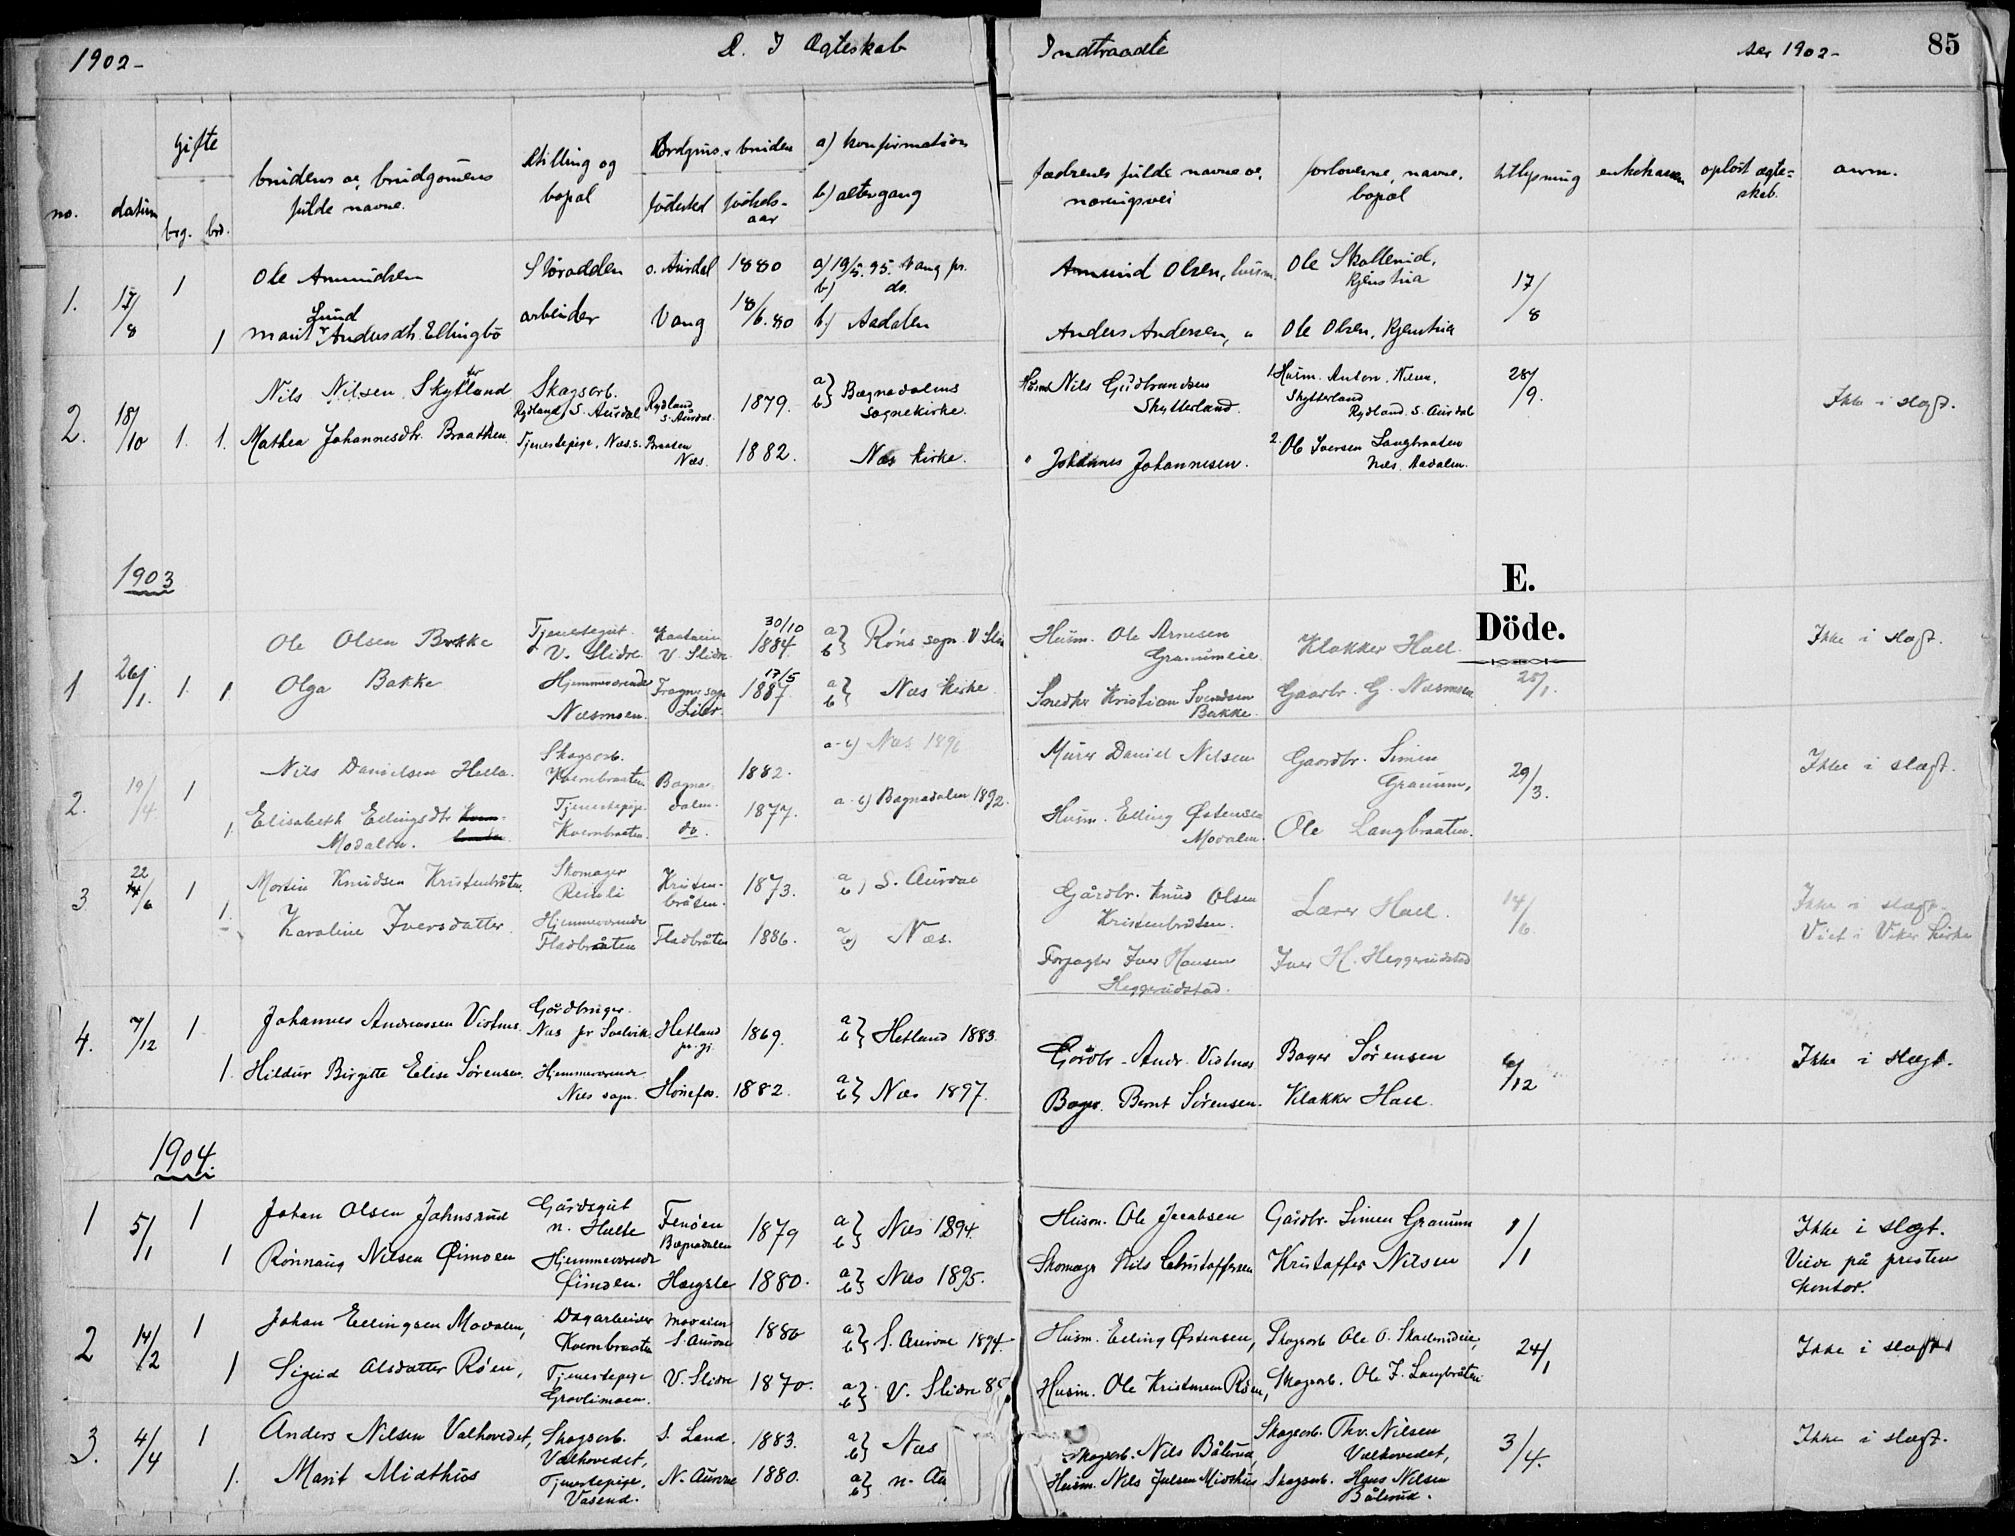 1902-
D. I Ægteskab
Indtraadte
1902-
85
no.
datum
Gifte
brg. brd.
brudens og brudgomens
fulde navne.
Stilling og
bopæl
Brdgms. brudens
födested
födsels-
aar
a) konfirmation
b) altergang
fædrenes fulde navne og
næringsvei
forloverne, navne,
bopæl
lysning
opløst ægte-
skab.
anm.
1. 17/8 1 Ole Amundsen
Støradden
Ø. Aurdal 1880
a) 19/5 95. Vang pr.
b) do.
Amund Olsen, husm.
Ole Skollerud,
17/8
1 Lund
Marit Andersdtr. Ellingbö
arbeider
Vang 18/6.80
b) Aadalen
Anders Andersen, "
Ole Olsen,
2. 18/10 1. Nils Nilsen Skytterland
Skogsarb.
Rydland, S. Aurdal
Rydland
S. Aurdal.
1879.
a}
b} Bægnadalens
sognekirke.
Husm. Nils Gudbrandsen
Skytterland.
1 Husm. Anton. Nilsen,
Skytterland
Rydland. S. Aurdal
28/9.
Ikke i slægt.
1. Mathea Johannesdtr. Braathen
Tjenestepige, Næs s.
Braaten
Næs.
1882.
Næs kirke.
" Johannes Johannesen.
2. Ole Iversen Langbraaten
Næs. Aadalen.
1903
E.
Döde.
1 26/1. 1. Ole Olsen Bakke
Tjenestegut
V. Slidre
V. Slidre
30/10
1884
a}
b} Røns sogn. V Slid
Husm. Ole Arnesen
Granumeie
Klokker Hall.
Ikke i slægt.
1. Olga Bakke
Hjemmeværende
Næsmoen.
Fragner sogn
Lier.
17/5
1887.
a}
b} Næs Kirke
Snedker Kristian Svendsen
Bakke.
Gaardbr. G. Næsmoen
25/1.
2. 19/4. 1 Nils Danielsen Hølla.
Skogsarb.
Kvernbraaten
Bagna-
dalen.
1882.
a-b) Næs 1896
Murer Daniel Nilsen
Gaardbr. Simen
Granum,
29/3.
Ikke i slægt.
1. Elisabeth Ellingsdtr
Modalen.
Tjenestepige
Kvernbraaten.
do.
1877.
a-b) Bagnadalen 1892.
Husm. Elling Østensen
Modalen.
Ole Langbraaten.
3 22
/6 1 Martin Knudsen Kristenbråten
Skomager
Kristen-
bråten.
1873.
a
b) S. Aurdal
Gårdbr. Knud Olsen
Kristenbråten.
Lærer Hall.
14/6
Ikke i slægt.
Viet i Viker kirke
1. Karoline Iversdatter
Hjemmeværende
Fladbråten
Fladbråten
1886.
a
b) Næs.
Forpagter Iver Hansen
Heggerudstad.
Iver H. Heggerudstad
4. 7/12 1 Johannes Andreassen Vistnes
Gårdbruger.
Næs pr Svelvik.
Hetland
pr. gj.
1869.
a}
b} Hetland 1883.
Gårdbr. Andr. Vistnes
Bager Sørensen
6/12
Ikke i slægt.
1. Hildur Birgitte Elise Sørensen
Hjemmeværende
Næs sogn.
Hönefos.
1882.
a}
b} Næs 1897.
Bager. Bernt Sörensen.
Klokker Hall.
1904.
1 5/1 1 Johan Olsen Johnsrud
Gårdsgut
n. Hulte
Fenöen
Bægnadalen
1879
a}
b} Næs 1894.
Husm. Ole Jacobsen
Gårdbr. Simen Granum
1/1
Ikke i slægt.
Viede på prestens
kontor.
1 Rönnaug Nilsen Öimoen
Hjemmeværende
Öimoen.
1880.
a}
b} Næs 1895.
Skomager Nils Christoffersen
Kristoffer Nilsen
2 14/2 1 Johan Ellingsen Modalen,
Dagarbeider
Kvernbraaten
Modalen
S. Aurdal
1880
a}
b} S. Aurdal 1894.
Husm. Elling Østensen,
Skogsarb. Ole O. Skollerudeie,
24/1
Ikke i slægt
1 Sigrid Olsdatter Röen,
Tjenestepige
Gravlimoen.
V. Slidre
1870.
a}
b} V. Slidre 85
Husm. Ole Kristensen Röen,
Skogsarb. Ole I. Langbråten
3. 4/4 1 Anders Nilsen Valhovedet,
Skogsarb.
Valhovedet,
S. Land.
1883.
a}
b} Næs
Skogsarb. Nils Bålerud,
Skogsarb. Thv. Nilsen
Valhovedet,
3/4.
Ikke i slægt.
1. Marit Midthus
Tjenestepige,
Vasend.
N. Aurdal
1880.
a}
b} n. Au
Husm. Nils Julsen Midthus
Skogsarb. Hans Nilsen
Bålerud.